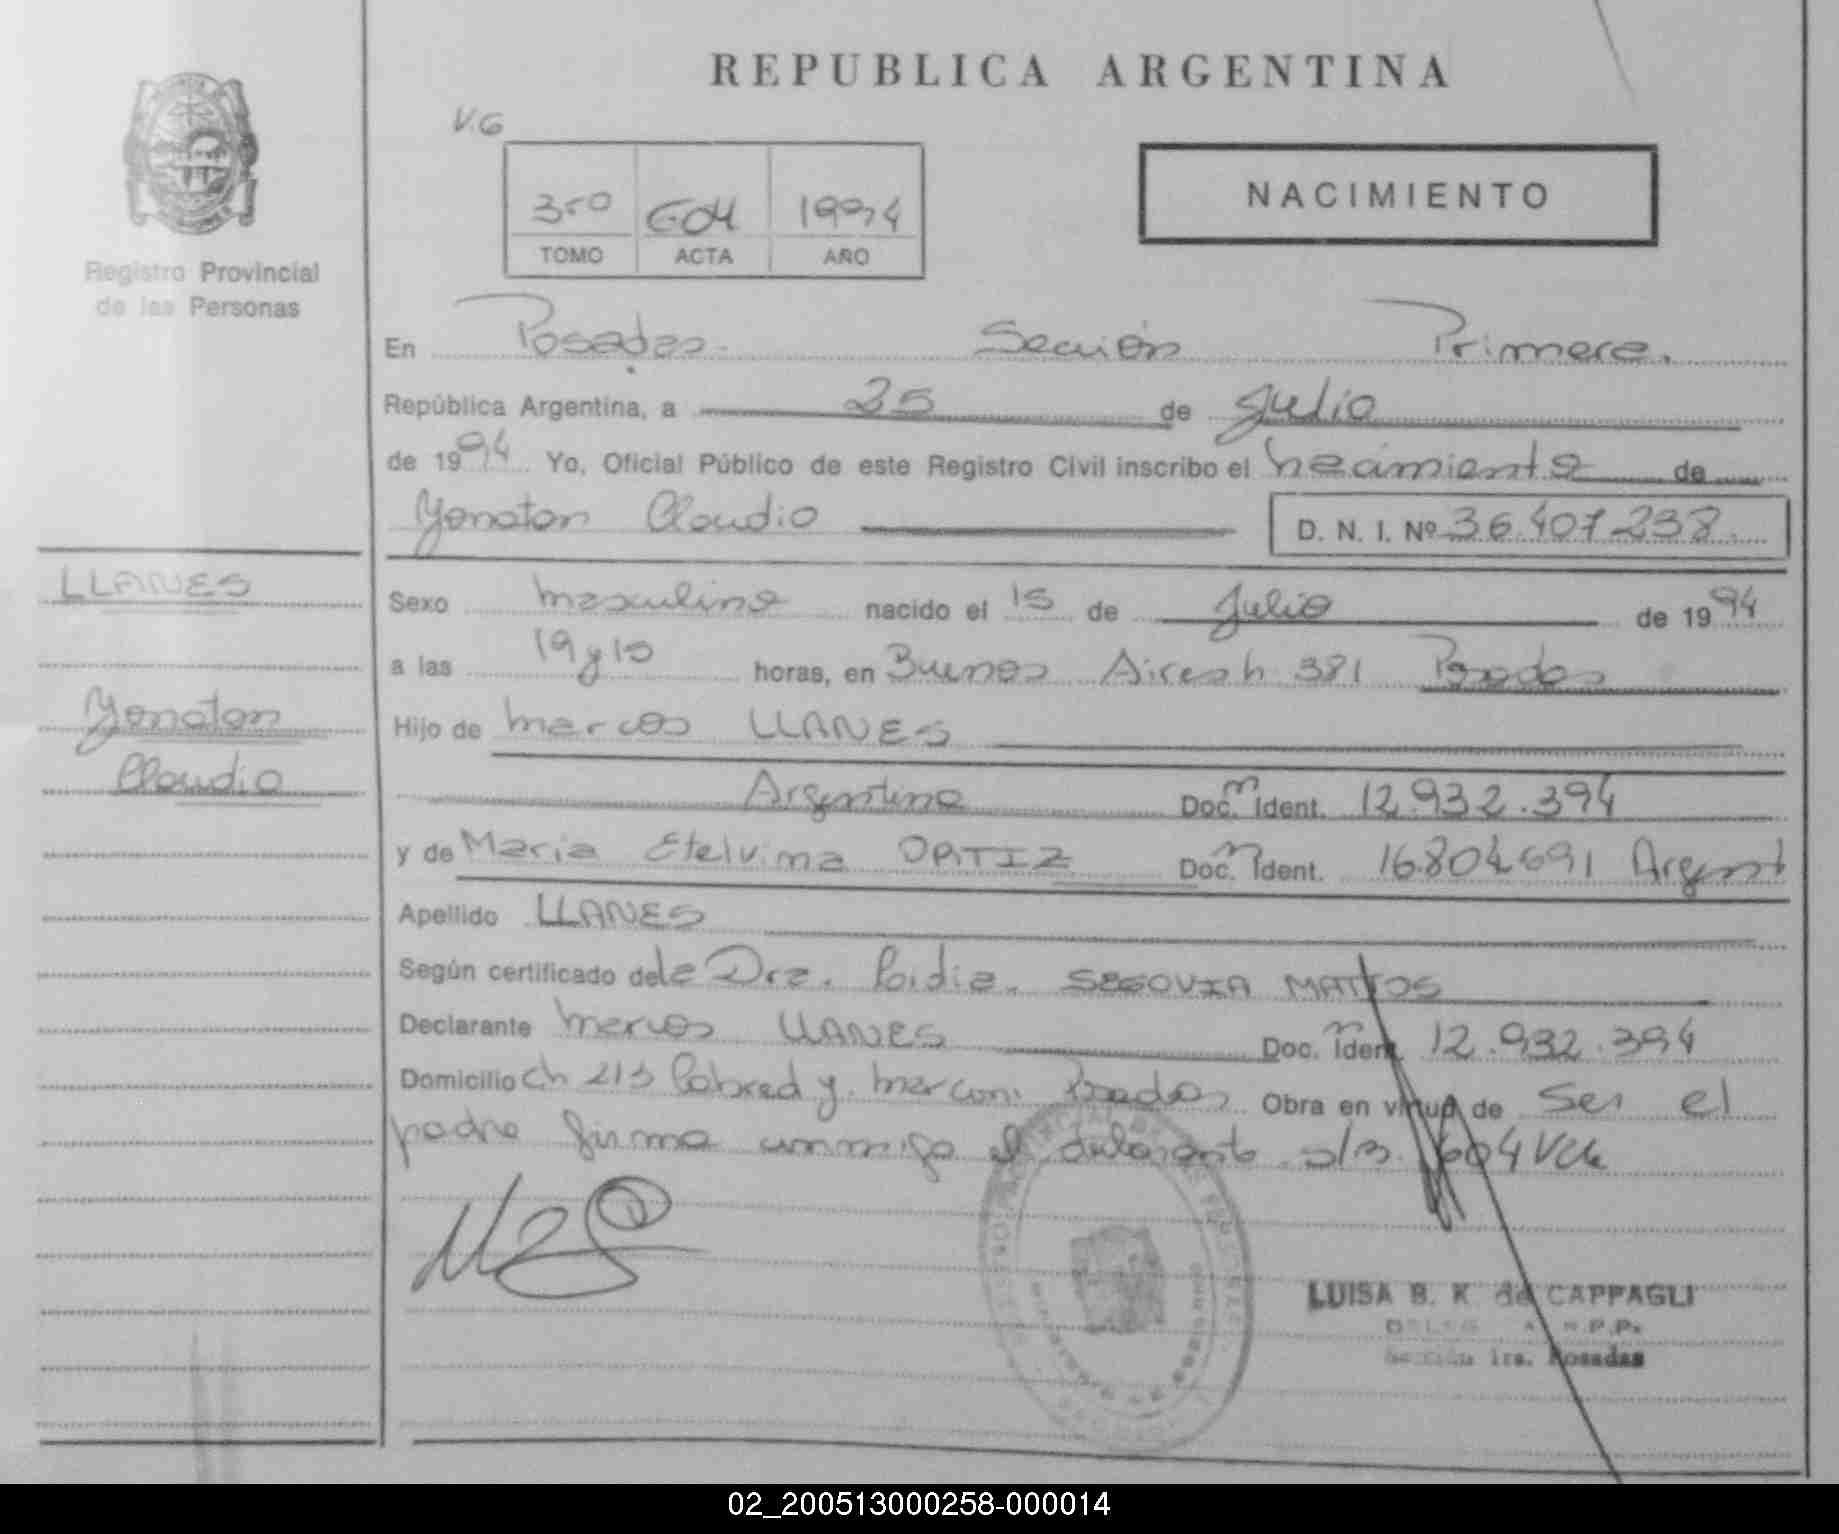 REPUBLICA ARGENTINA
V.G
Registro Provincial
de las Personas
604 1994
TOMO ACTA AÑO
NACIMIENTO
En Posadas Sección Primera.
República Argentina, a 25 de Julio
de 1994 Yo, Oficial Público de este Registro Civil inscribo el nacimiento de
Yonatan Claudio D. N. I. Nº 36.407.238
LLANES
Yonatan
Claudio
Sexo masculino nacido el 15 de Julio de 1994
a las 19 y 15 horas, en Buenos Aires n 381 Posadas
Hijo de Marcos LLANES
Argentino Doc. Ident. 12.932.394
y de Maria Etelvina ORTIZ Doc. Ident. 16.804.691 Argent
Apellido LLANES
Según certificado de la Dra. Lidia SEGOVIA MATTOS
Declarante Marcos LLANES Doc. Ident. 12.932.394
Domicilio ch 213 Cabred y Marconi Posadas Obra en virtud de ser el
padre firma conmigo el declarante 604 Vale
LUISA B. K. de CAPPAGLI
R.P.P.
Sección 1ra. Posadas
02_200513000258-000014